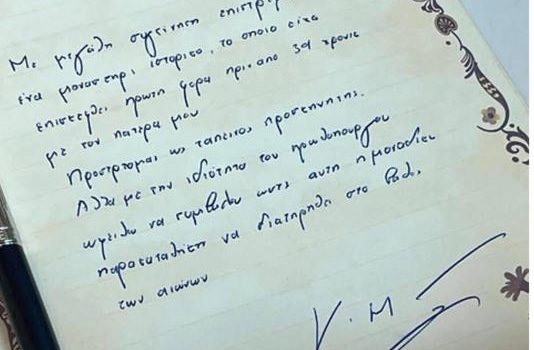 Με μεγάλη συγκίνηση επιστρέ
ένα μοναστήρι ιστορικό, το οποίο είχα
επισκεφθεί πρώτη φορά πριν από 39 χρόνια
με τον πατέρα μου
Προσέρχομαι ως ταπεινός προσκυνητής.
Αλλά με την ιδιότητα του πρωθυπουργού
οφείλω να συμβάλω ώστε αυτή η μοναδική
παρακαταθήκη να διατηρηθεί στο βάθος
των αιώνων
Κ. Μ